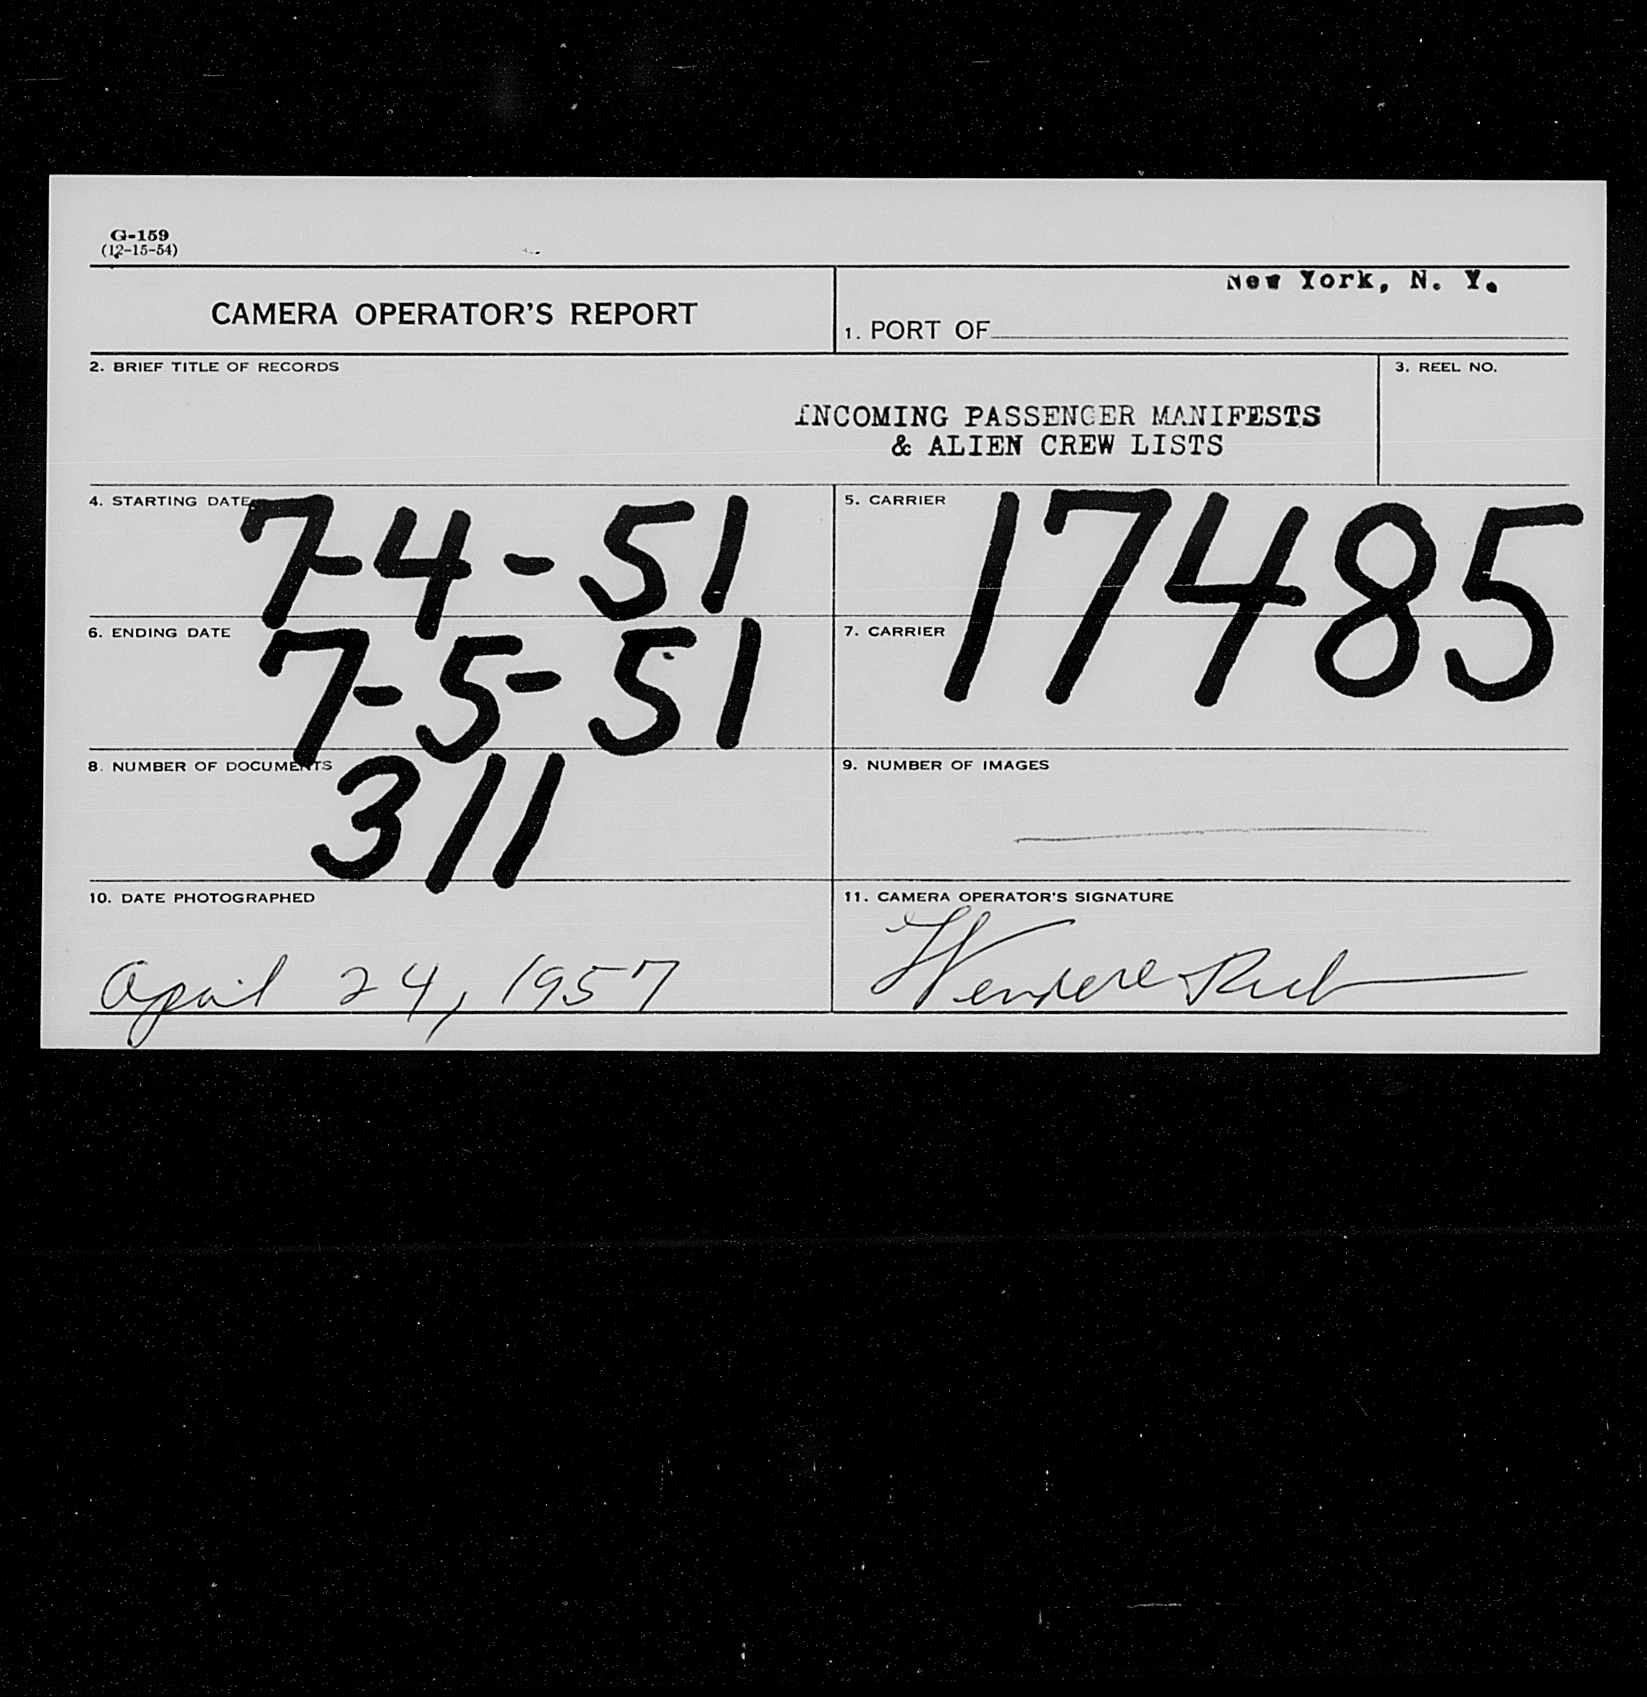 G-159
(12-15-54)
CAMERA OPERATOR'S REPORT
New York, N. Y.
1. PORT OF
2. BRIEF TITLE OF RECORDS
INCOMING PASSENGER MANIFESTS
& ALIEN CREW LISTS
3. REEL NO.
4. STARTING DATE
7-4-51
5. CARRIER
17485
6. ENDING DATE
7-5-51
7. CARRIER
8. NUMBER OF DOCUMENTS
311
9. NUMBER OF IMAGES
10. DATE PHOTOGRAPHED
April 24, 1957
11. CAMERA OPERATOR'S SIGNATURE